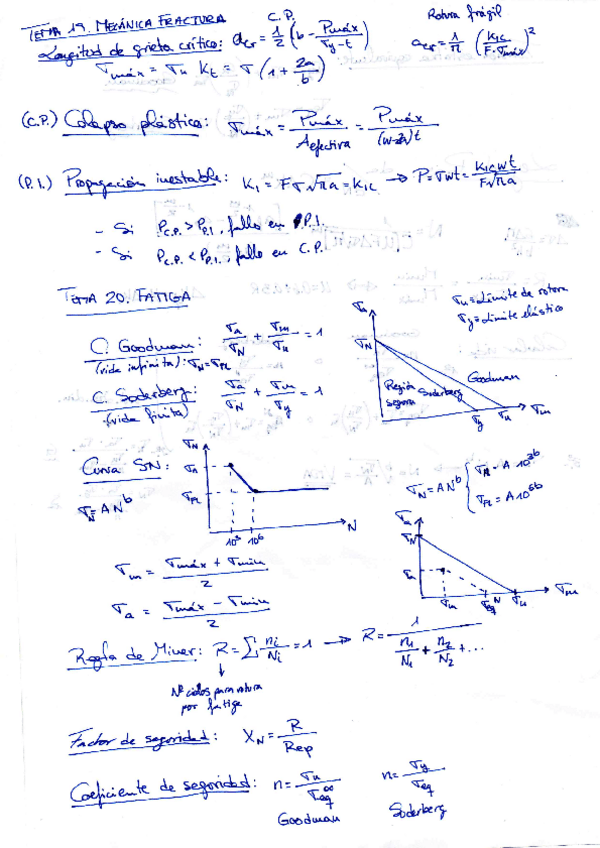 TEMA 19. MECÁNICA FRACTURA
C.P.
Rotura frágil
Longitud de grieta crítica: a_cr = 1/2 (b - Pmáx/(σy·t))
a_cr = 1/π (K1c/(F·σmáx))²
σmáx = σu Kt = σ (1 + 2a/b)
(C.P.) Colapso plástico: σmáx = Pmáx/Aefectiva = Pmáx/((w-a)t)
(P.I.) Propagación inestable: K1 = Fσ√πa = K1c → P = σwt = K1c wt/(F√πa)
- Si P_C.P. > P_P.I., fallo en P.I.
- Si P_C.P. < P_P.I., fallo en C.P.
TEMA 20. FATIGA
σu = Límite de rotura
σy = Límite elástico
C. Goodman: σa/σN + σm/σu = 1
(vida infinita): σN = σFL
C. Soderberg: σa/σN + σm/σy = 1
(vida finita)
σa
σN
Región segura
Soderberg
Goodman
σy
σu
σm
Curva SN:
σN = AN^b
σN
σn
σFL
10³
10⁶
N
σN = AN^b { σn = A10^3b
σFL = A10^6b
σa
σN
σa
σm
σeq^N
σu
σm
σm = (σmáx + σmin)/2
σa = (σmáx - σmin)/2
Regla de Miner: R = Σ ni/Ni = 1 → R = 1/(n1/N1 + n2/N2 + ...)
Nº ciclos para rotura
por fatiga
Factor de seguridad: XN = R/Rep
Coeficiente de seguridad: n = σu/σeq^∞
n = σy/σeq
Goodman
Soderberg